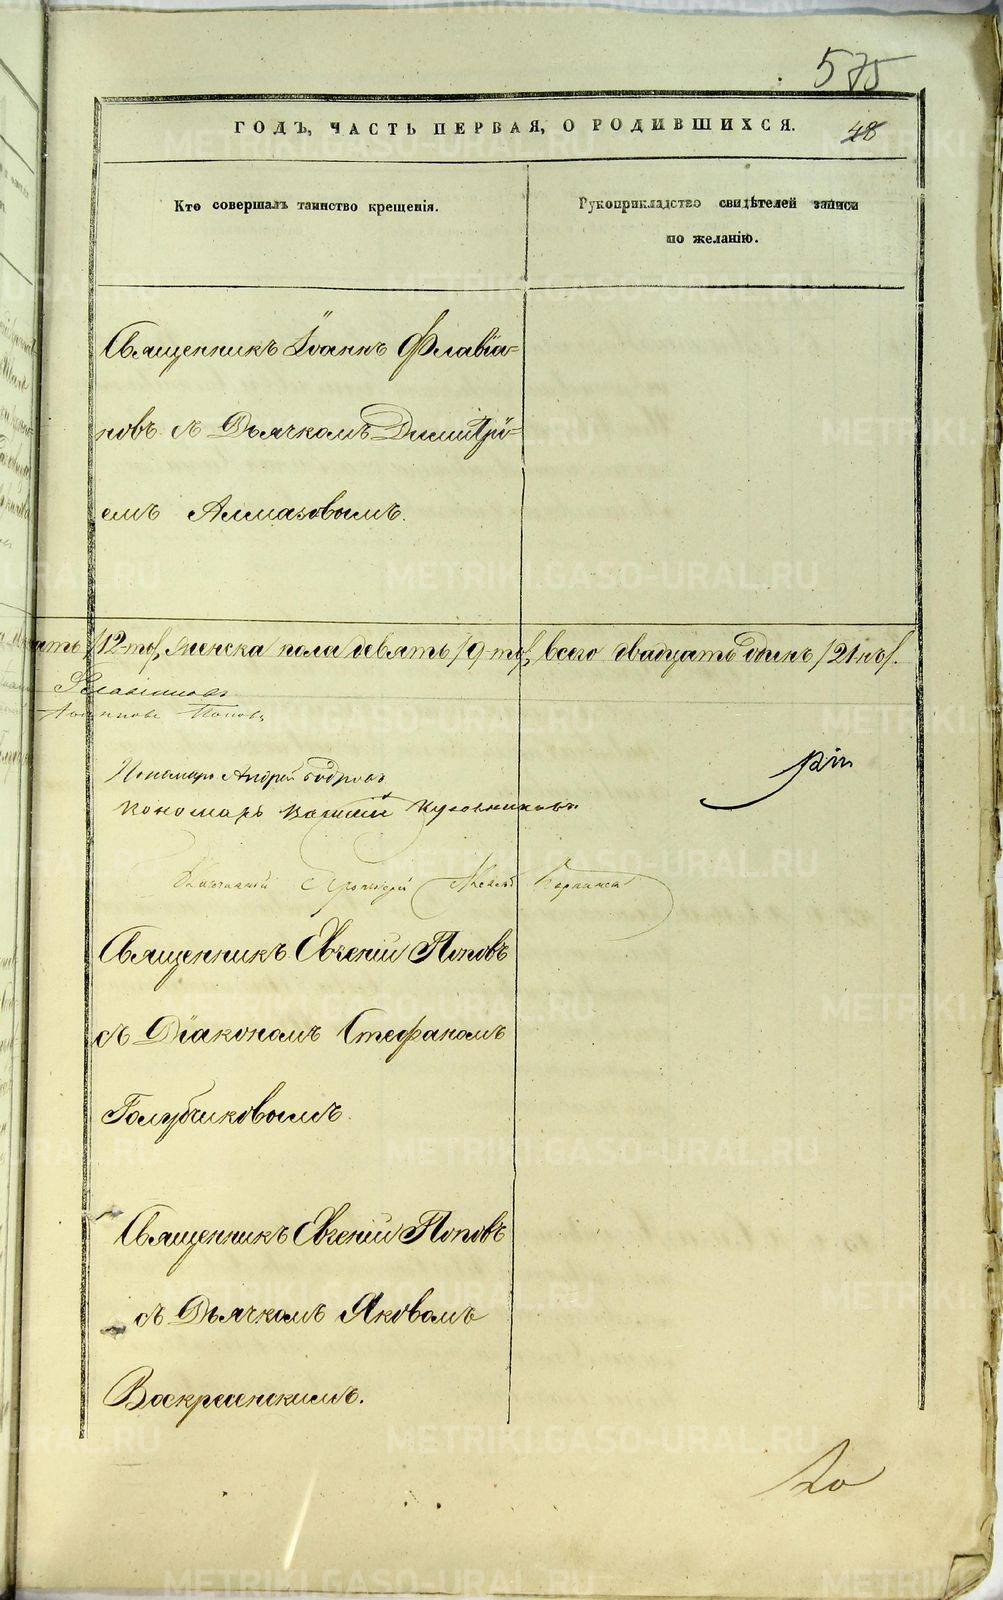 575
ГОДЪ, ЧАСТЬ ПЕРВАЯ, О РОДИВШИХСЯ.
48
Кто совершалъ таинство крещенія.
Рукоприкладство свидѣтелей записи
по желанію.
Священникъ Іоаннъ Флавіа=
новъ съ Дьячкомъ Димитрі=
емъ Алмазовымъ.
/12-ть/, женска пола девять /9-ть/, всего двадцать одинъ /21-нъ/.
Флавіановъ
Поповъ
Пономарь Андрей Бодровъ
Пономарь Василій
Протоіерей
Священникъ Евгеній Поповъ
съ Діакономъ Стефаномъ
Голубчиковымъ.
Священникъ Евгеній Поповъ
съ Дьячкомъ Яковомъ
Воскресенскимъ.
METRIKI.GASO-URAL.RU